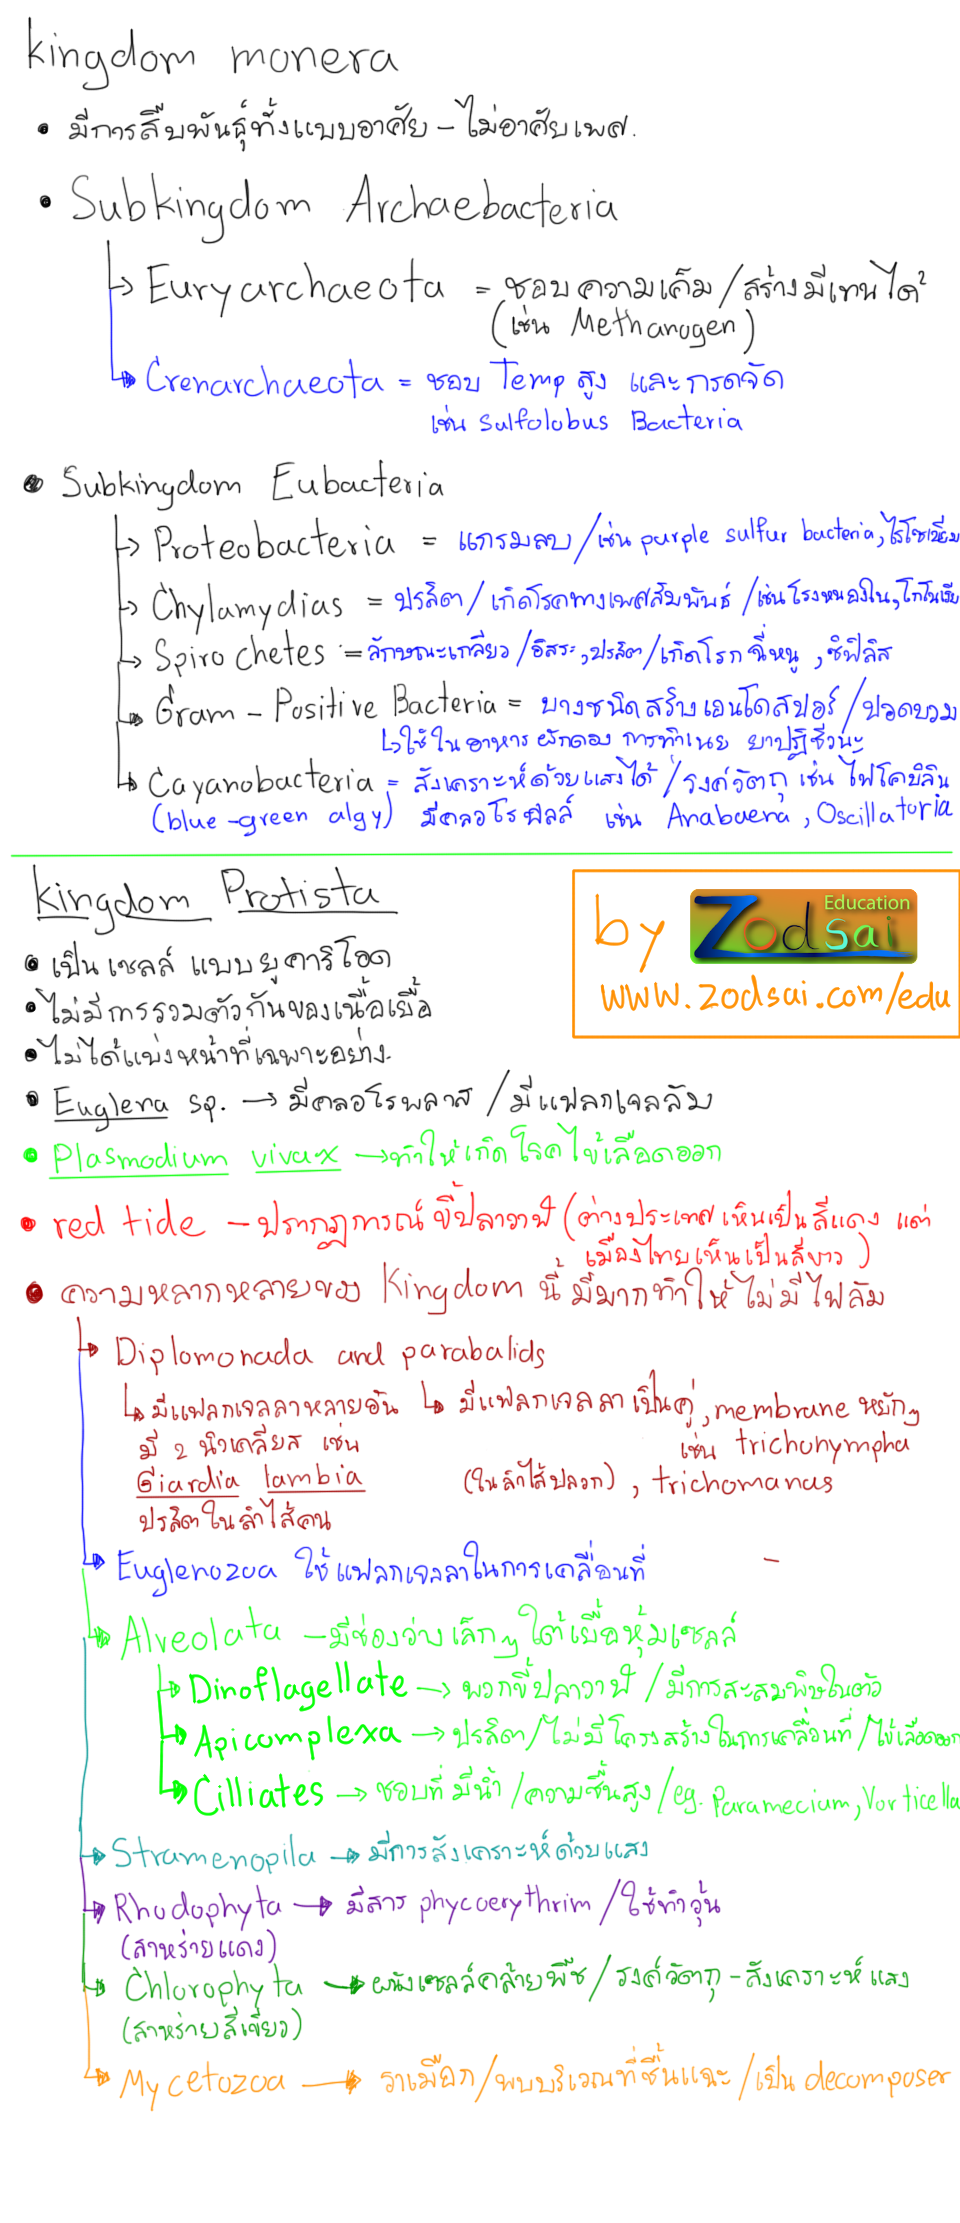 kingdom monera
• มีการสืบพันธุ์ทั้งแบบอาศัย - ไม่อาศัยเพศ.
• Subkingdom Archaebacteria
→ Euryarchaeota = ชอบความเค็ม / สร้างมีเทนได้
(เช่น Methanogen)
→ Crenarchaeota = ชอบ Temp สูง และกรดจัด
เช่น Sulfolobus Bacteria
• Subkingdom Eubacteria
→ Proteobacteria = แกรมลบ / เช่น purple sulfur bacteria, ไรโซเบียม
→ Chylamydias = ปรสิต / เกิดโรคทางเพศสัมพันธ์ / เช่นโรคหนองใน, โกโนเรีย
→ Spirochetes = ลักษณะเกลียว / อิสระ, ปรสิต / เกิดโรค ฉี่หนู, ซิฟิลิส
→ Gram - Positive Bacteria = บางชนิดสร้างเอนโดสปอร์ / ปอดบวม
↳ ใช้ในอาหาร ผักดอง การทำเนย ยาปฏิชีวนะ
→ Cayanobacteria = สังเคราะห์ด้วยแสงได้ / รงควัตถุ เช่น ไฟโคบิลิน
(blue-green algy) มีคลอโรฟิลล์ เช่น Anabaena, Oscillatoria
kingdom Protista
by Zodsai Education
www.zodsai.com/edu
• เป็นเซลล์ แบบยูคาริโอต
• ไม่มีการรวมตัวกันของเนื้อเยื่อ
• ไม่ได้แบ่งหน้าที่เฉพาะอย่าง.
• Euglena sp. → มีคลอโรพลาส / มีแฟลกเจลลัม
• Plasmodium vivax → ทำให้เกิดโรคไข้เลือดออก
• red tide - ปรากฏการณ์ ขี้ปลาวาฬ (ต่างประเทศเห็นเป็นสีแดง แต่
เมืองไทยเห็นเป็นสีขาว)
• ความหลากหลายของ Kingdom นี้ มีมากทำให้ไม่มีไฟลัม
→ Diplomonada and parabalids
↳ มีแฟลกเจลลาหลายอัน ↳ มีแฟลกเจลลาเป็นคู่, membrane หยักๆ
มี 2 นิวเคลียส เช่น เช่น trichonympha
Giardia lambia (ในลำไส้ปลวก), trichomanas
ปรสิตในลำไส้คน
→ Euglenozoa ใช้แฟลกเจลลาในการเคลื่อนที่
→ Alveolata - มีช่องว่างเล็กๆ ใต้เยื่อหุ้มเซลล์
→ Dinoflagellate → พวกขี้ปลาวาฬ / มีการสะสมพิษในตัว
→ Apicomplexa → ปรสิต / ไม่มีโครงสร้างในการเคลื่อนที่ / ไข้เลือดออก
→ Cilliates → ชอบที่มีน้ำ / ความชื้นสูง / eg. Paramecium, Vorticella
→ Stramenopila → มีการสังเคราะห์ด้วยแสง
→ Rhodophyta → มีสาร phycoerythrim / ใช้ทำวุ้น
(สาหร่ายแดง)
→ Chlorophyta → ผนังเซลล์คล้ายพืช / รงควัตถุ - สังเคราะห์แสง
(สาหร่ายสีเขียว)
→ Mycetozoa → ราเมือก / พบบริเวณที่ชื้นแฉะ / เป็น decomposer